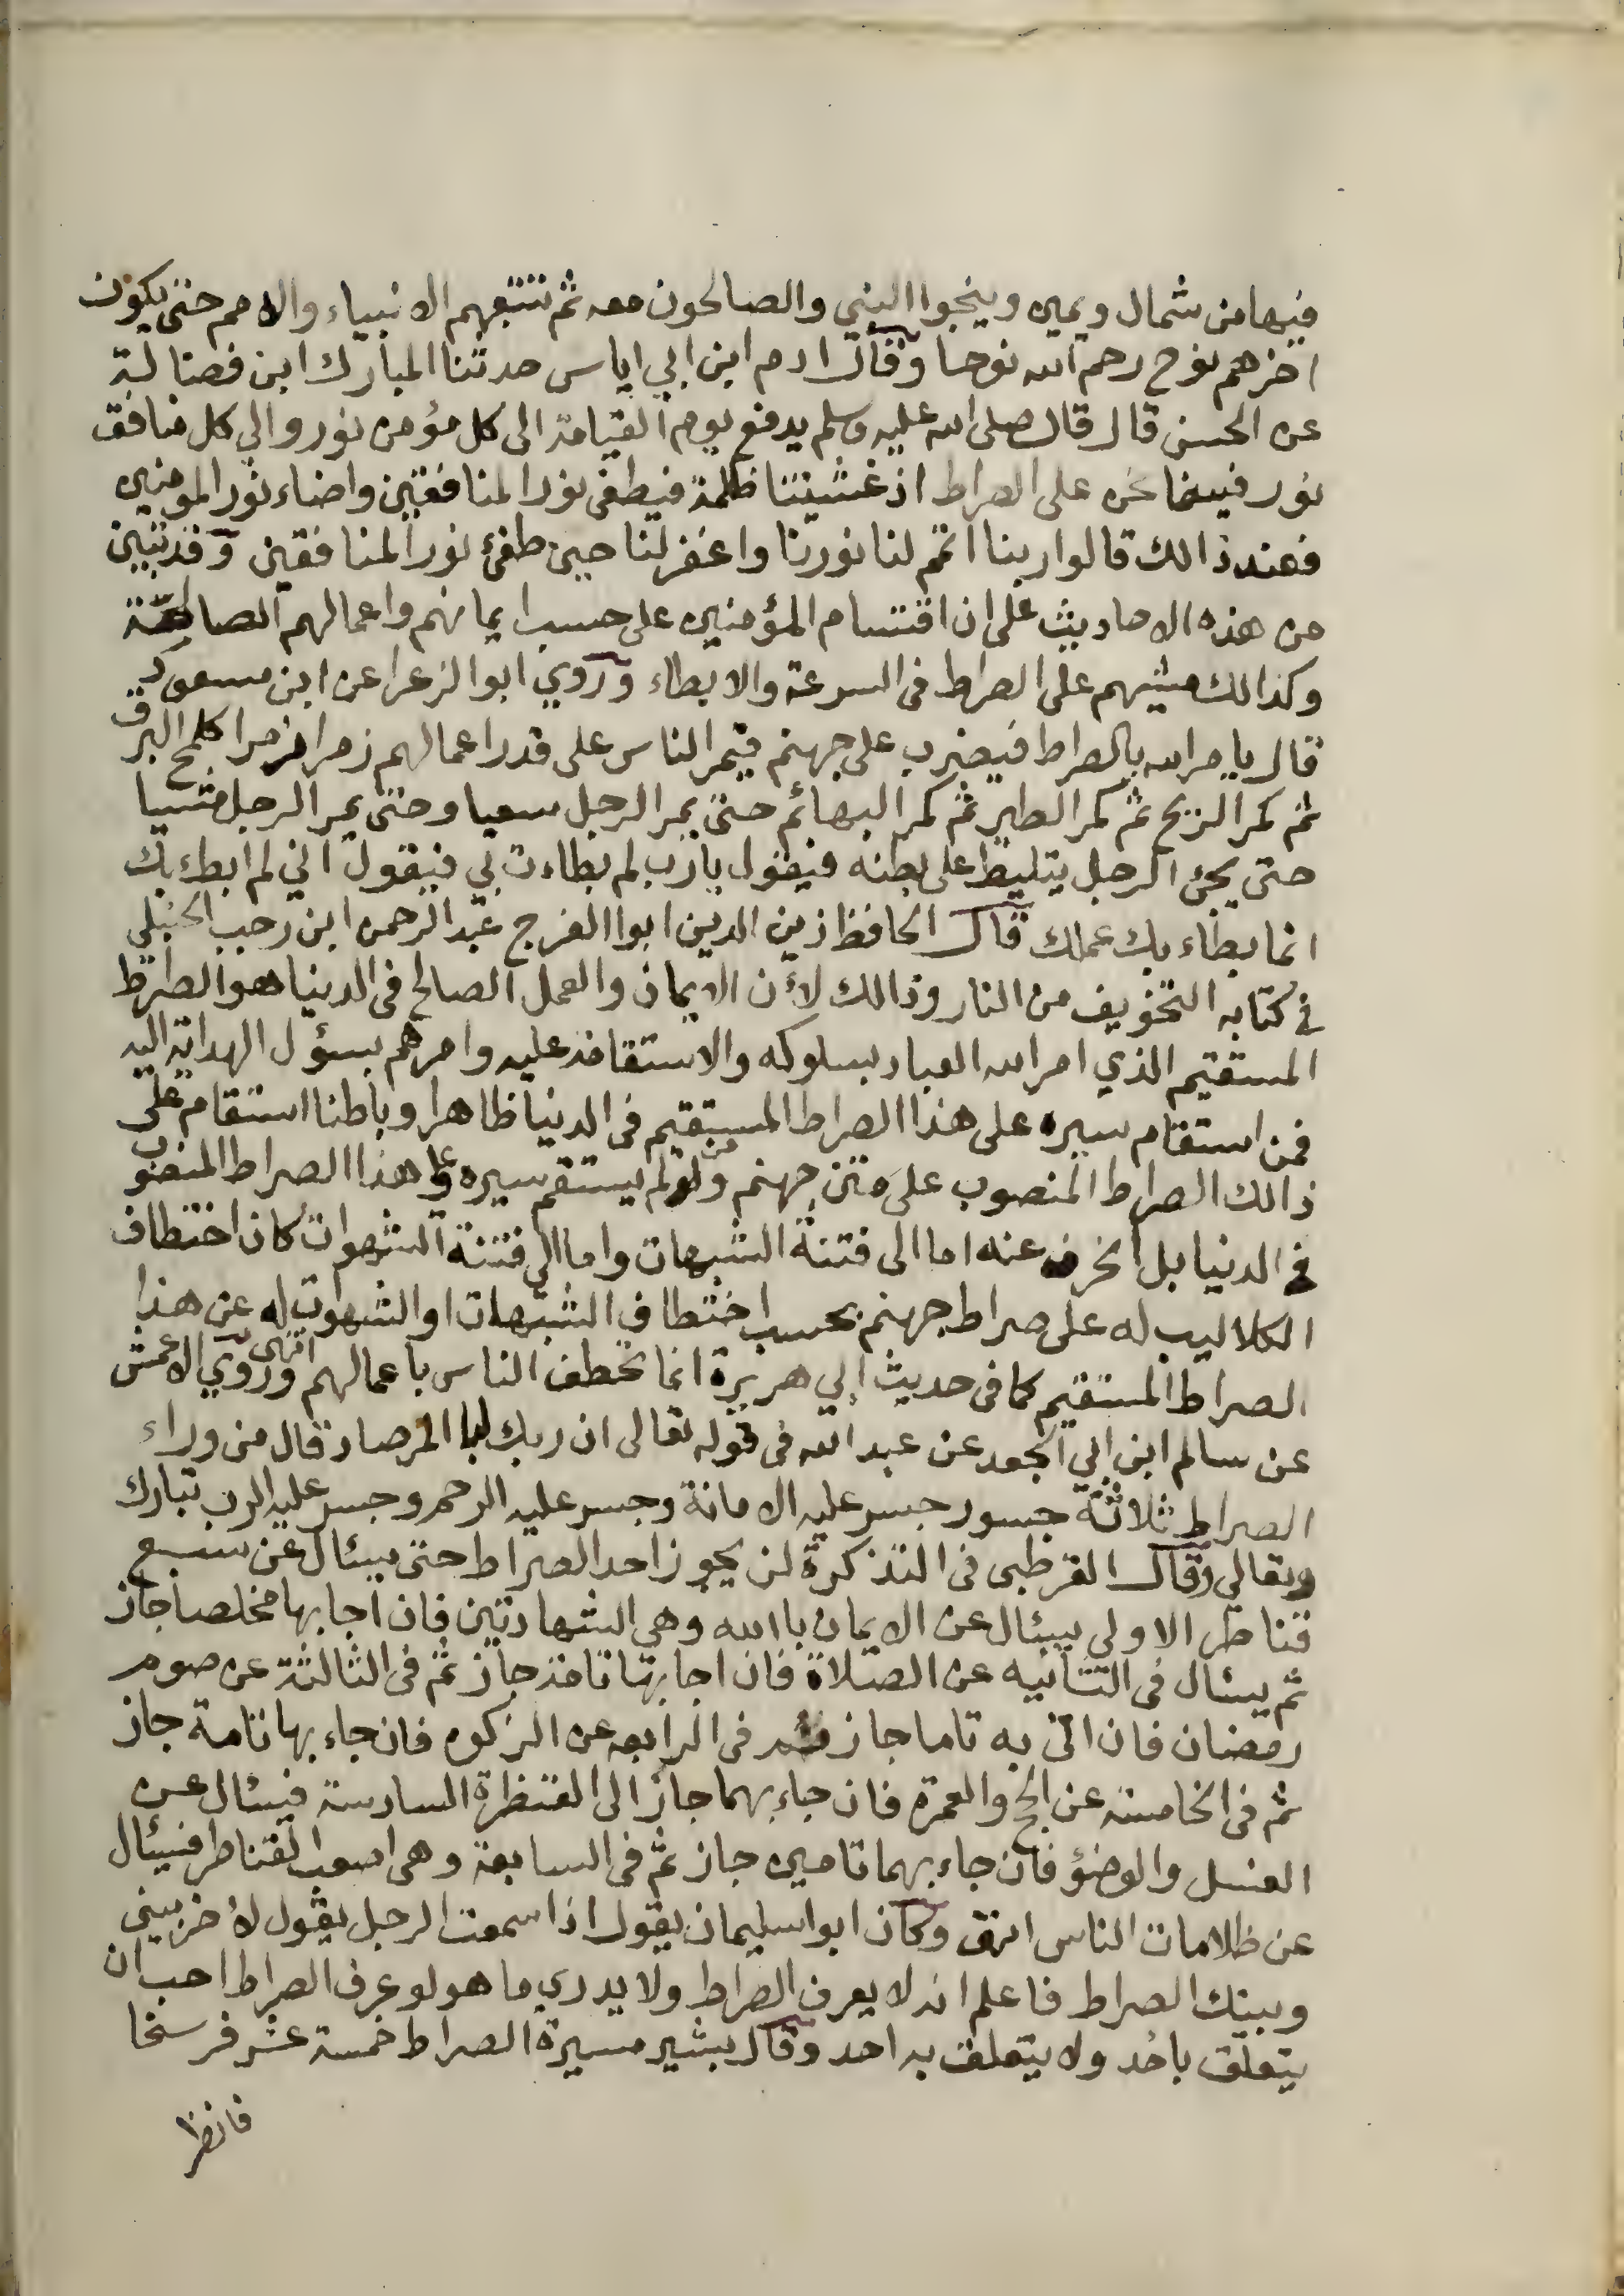 فيها من شمال ويمين وينجوا النبي والصالحون معه ثم تتبعهم الانبياء والامم حتى يكون
اخرهم نوح رحم الله نوحا وقال ادم ابن ابي اياس حدثنا المبارك ابن فضالة
عن الحسن قال قال صلى الله عليه وسلم يدفع يوم القيامة الى كل مؤمن نور والي كل منافق
نور فبينما نحن على الصراط اذ غشيتنا ظلمة فيطفى نور المنافقين واضاء نور المومنين
فعند ذالك قالوا ربنا اتمم لنا نورنا واغفر لنا حين طفئ نور المنافقين وقد تبين
من هذه الاحاديث على ان اقتسام المؤمنين على حسب ايمانهم واعمالهم الصالحة
وكذالك مشيهم على الصراط فى السرعة والابطاء وروي ابوا الزعرا عن ابن مسعود
قال يامر الله بالصراط فيضرب على جهنم فيمر الناس على قدر اعمالهم زمرا زمرا كلمح البرق
ثم كمر الريح ثم كمر الطير ثم كمر البهائم حتى يمر الرجل سعيا وحتى يمر الرجل مشيا
حتى يجئ الرجل يتلبط على بطنه فيقول يارب لم بطاءت بي فيقول اني لم ابطء بك
انما بطاء بك عملك قال الحافظ زين الدين ابوا الفرج عبد الرحمن ابن رجب الحنبلي
في كتابه التخويف من النار وذالك لأن الايمان والعمل الصالح فى الدنيا هو الصراط
المستقيم الذي امر الله العباد بسلوكه والاستقامة عليه وامرهم بسؤل الهداية اليه
فمن استقام سيره على هذا الصراط المستقيم فى الدنيا ظاهرا وباطنا استقام على
ذالك الصراط المنصوب على متن جهنم ومن لم يستقم سيره على هذا الصراط المنصوب
في الدنيا بل انحرف عنه اما الى فتنة الشبهات واما الي فتنة الشهوات كان اختطاف
الكلاليب له على صراط جهنم بحسب اختطاف الشبهات او الشهوات له عن هذا
الصراط المستقيم كما فى حديث ابي هريرة انما تخطف الناس باعمالهم انتهى وروي الاعمش
عن سالم ابن ابي الجعد عن عبد الله فى قوله تعالى ان ربك لبا المرصاد قال من وراء
الصراط ثلاثة جسور جسر عليه الامانة وجسر عليه الرحم وجسر عليه الرب تبارك
وتعالي وقال القرطبى فى التذكرة لن يجوز احد الصراط حتى يسئال عن سبع
قناطر الاولي يسئال عن الايمان باالله وهى الشهادتين فان اجا بها مخلصا جاز
ثم يسئال فى الثانيه عن الصلاة فان اجا بها تامة جاز ثم فى الثالثة عن صوم
رمضان فان اتى به تاما جاز ثم فى الرابعه عن الزكوه فان جاء بها تامة جاز
ثم فى الخامسة عن الحج والعمرة فان جاء بهما جاز الى القنطرة السادسة فيسئال عن
الغسل والوضؤ فان جاء بهما تامين جاز ثم فى السابعة وهى اصعب القناطر فيسئال
عن ظلامات الناس انتهى وكان ابوا سليمان يقول اذا سمعت الرجل يقول لأخر بينى
وبينك الصراط فاعلم انه لا يعرف الصراط ولا يدري ما هو لو عرف الصراط احب ان
يتعلق باحد ولا يتعلق به احد وقال بشير مسيرة الصراط خمسة عشر فرسخا
فانظر